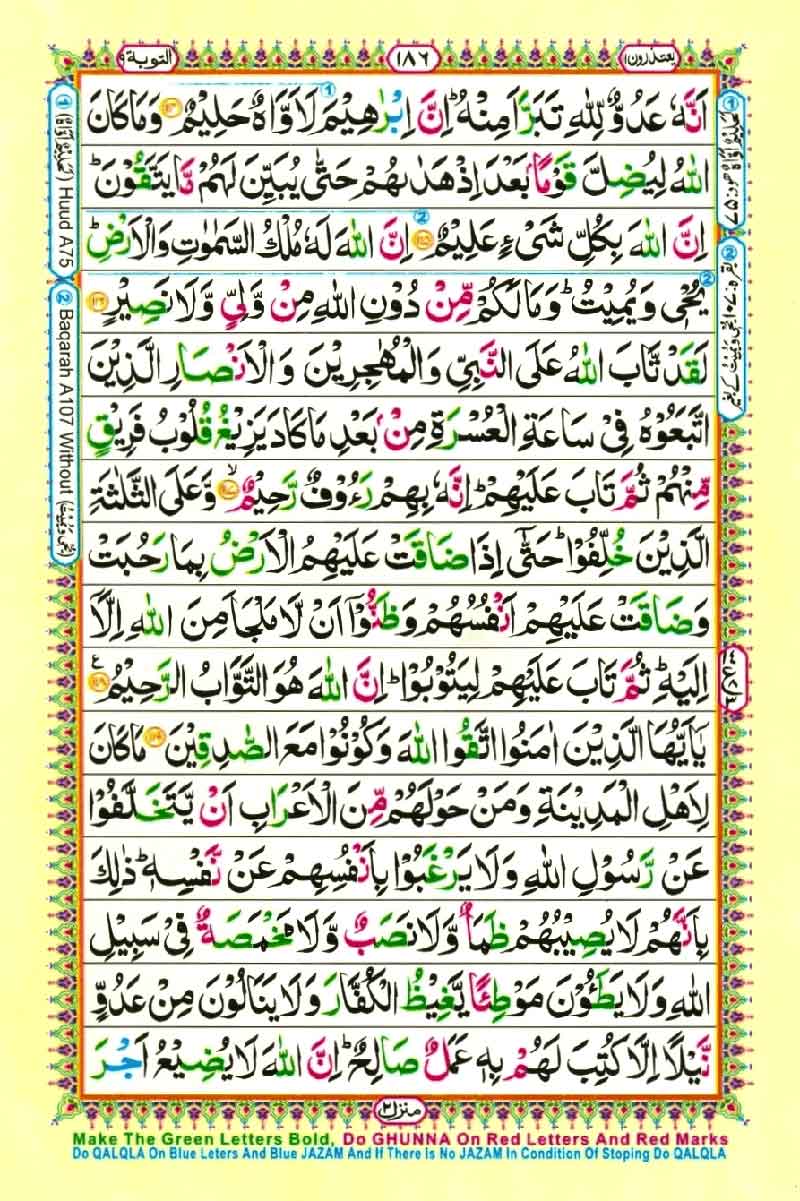 التوبة ٩
١٨٦
يعتذرون ١١
اَنَّهٗ عَدُوٌّ لِّلّٰهِ تَبَرَّاَ مِنْهُ ؕ اِنَّ اِبْرٰهِيْمَ لَاَوَّاهٌ حَلِيْمٌ ۝۱۱۴ وَمَا كَانَ
اللّٰهُ لِيُضِلَّ قَوْمًۢا بَعْدَ اِذْ هَدٰىهُمْ حَتّٰى يُبَيِّنَ لَهُمْ مَّا يَتَّقُوْنَ ؕ
اِنَّ اللّٰهَ بِكُلِّ شَىْءٍ عَلِيْمٌ ۝۱۱۵ اِنَّ اللّٰهَ لَهٗ مُلْكُ السَّمٰوٰتِ وَالْاَرْضِ ؕ
يُحْىٖ وَيُمِيْتُ ؕ وَمَا لَكُمْ مِّنْ دُوْنِ اللّٰهِ مِنْ وَّلِىٍّ وَّلَا نَصِيْرٍ ۝۱۱۶
لَقَدْ تَّابَ اللّٰهُ عَلَى النَّبِىِّ وَالْمُهٰجِرِيْنَ وَالْاَنْصَارِ الَّذِيْنَ
اتَّبَعُوْهُ فِىْ سَاعَةِ الْعُسْرَةِ مِنْۢ بَعْدِ مَا كَادَ يَزِيْغُ قُلُوْبُ فَرِيْقٍ
مِّنْهُمْ ثُمَّ تَابَ عَلَيْهِمْ ؕ اِنَّهٗ بِهِمْ رَءُوْفٌ رَّحِيْمٌ ۝۱۱۷ۙ وَّعَلَى الثَّلٰثَةِ
الَّذِيْنَ خُلِّفُوْا ؕ حَتّٰۤى اِذَا ضَاقَتْ عَلَيْهِمُ الْاَرْضُ بِمَا رَحُبَتْ
وَضَاقَتْ عَلَيْهِمْ اَنْفُسُهُمْ وَظَنُّوْۤا اَنْ لَّا مَلْجَاَ مِنَ اللّٰهِ اِلَّاۤ
اِلَيْهِ ؕ ثُمَّ تَابَ عَلَيْهِمْ لِيَتُوْبُوْا ؕ اِنَّ اللّٰهَ هُوَ التَّوَّابُ الرَّحِيْمُ ۝۱۱۸ ع
يٰۤاَيُّهَا الَّذِيْنَ اٰمَنُوا اتَّقُوا اللّٰهَ وَكُوْنُوْا مَعَ الصّٰدِقِيْنَ ۝۱۱۹ مَا كَانَ
لِاَهْلِ الْمَدِيْنَةِ وَمَنْ حَوْلَهُمْ مِّنَ الْاَعْرَابِ اَنْ يَّتَخَلَّفُوْا
عَنْ رَّسُوْلِ اللّٰهِ وَلَا يَرْغَبُوْا بِاَنْفُسِهِمْ عَنْ نَّفْسِهٖ ؕ ذٰلِكَ
بِاَنَّهُمْ لَا يُصِيْبُهُمْ ظَمَاٌ وَّلَا نَصَبٌ وَّلَا مَخْمَصَةٌ فِىْ سَبِيْلِ
اللّٰهِ وَلَا يَطَـُٔوْنَ مَوْطِئًا يَّغِيْظُ الْكُفَّارَ وَلَا يَنَالُوْنَ مِنْ عَدُوٍّ
نَّيْلًا اِلَّا كُتِبَ لَهُمْ بِهٖ عَمَلٌ صَالِحٌ ؕ اِنَّ اللّٰهَ لَا يُضِيْعُ اَجْرَ
① (لَحَلِيْمٌ اَوَّاهٌ) Huud A75
② Baqarah A107 Without (يُحْىٖ وَيُمِيْتُ)
① لَحَلِيْمٌ اَوَّاهٌ هود: ٧٥
② بقره: ١٠٧ يُحْىٖ وَيُمِيْتُ کے بغیر
منزل ٢
Make The Green Letters Bold, Do GHUNNA On Red Letters And Red Marks
Do QALQLA On Blue Leters And Blue JAZAM And If There Is No JAZAM In Condition Of Stoping Do QALQLA